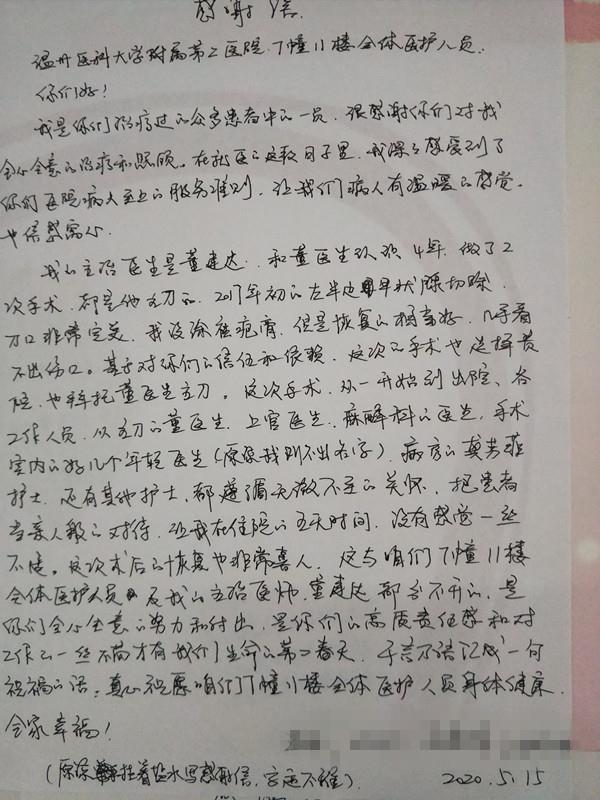 感谢信
温州医科大学附属第二医院7幢11楼全体医护人员.
你们好!
我是你们治疗过的众多患者中的一员.很感谢你们对我
全心全意的治疗和照顾.在的这段日子里.我深深感受到了
你们医院病人至上的服务准则.让我们病人有温暖的感觉.
也倍感窝心.
我的主治医生是董建达.和董医生 4年.做了2
次手术.都是他主刀的.2017年初的左半边甲状腺切除.
刀口非常完美.我没除疤膏.但是恢复的相当好.几乎看
不出伤口。基于对你们的信任和依赖.这次的手术也选择贵
院.也拜托董医生主刀.这次手术.从一开始到出院.各
工作人员.从主刀的董医生.上官医生.麻醉科的医生.手术
室内的好几个年轻医生(原谅我叫不出名字).病房的
护士.还有其他护士.都无微不至的关怀.把患者
当亲人般的对待.让我在住院的五天时间.没有感觉一丝
不适.这次术后的恢复也非常喜人.这与咱们7幢11楼
全体医护人员及我的主治医师.董建达都分不开的.是
你们全心全意的努力和付出.是你们的高度责任感和对
工作的一丝不苟才有我们生命的第二春天.千言万语汇成一句
祝福的话:真心祝愿咱们7幢11楼全体医护人员身体健康.
全家幸福!
(原谅挂着盐水写感谢信.字迹不雅)
2020.5.15